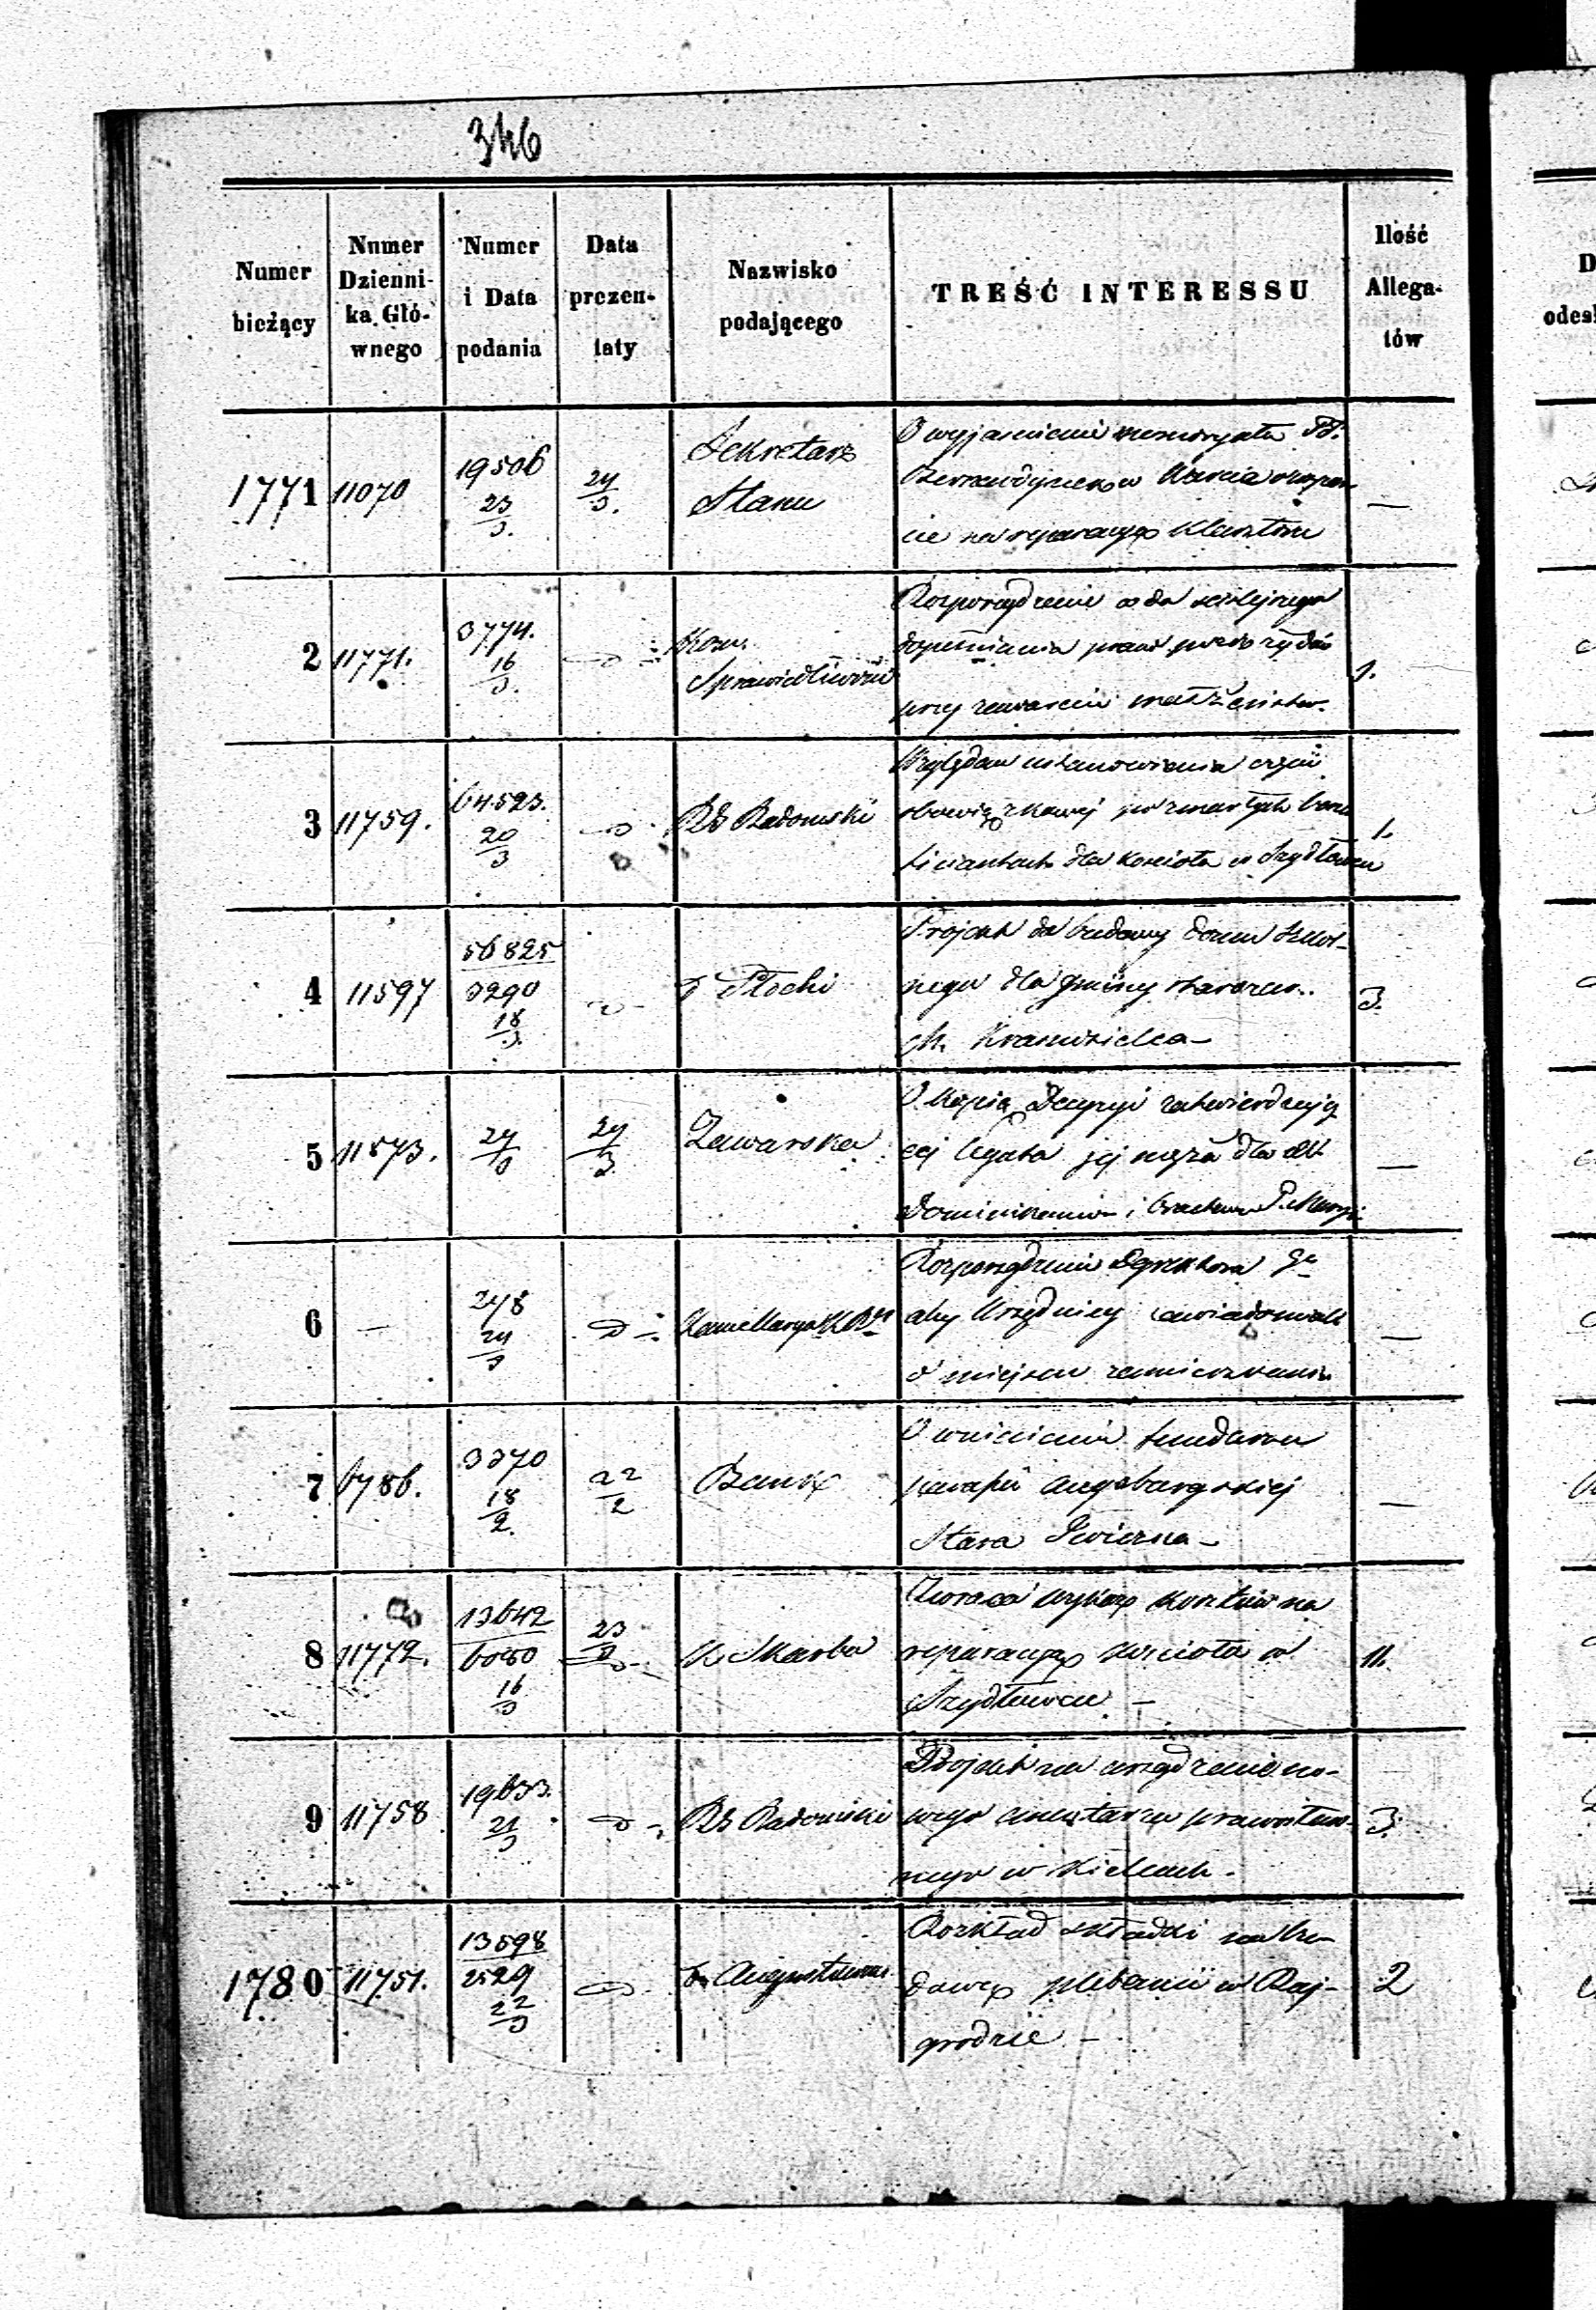 346
Numer bieżący
Numer Dzienni- ka Głó- wnego
Numer i Data podania
Data prezen- taty
Nazwisko podającego
TREŚĆ INTERESSU
Ilość Allega- tów
1771 11070 19506 23/3. 24/3. Sekretarz Stanu
O wyjaśnienie memoryału PP.
Bernardynek w Warcie o wspar-
cie na reparacyę Klasztoru
—
2 11771. 3774. 16/3. —D— Kom. Sprawiedliwości
Rozporządzenie co do ściślejszego
dopełniania praw przez żydów
przy zawarciu małżeństw.
1.
3 11759. 64523. 20/3 —D— RG Radomski
Względem ustanowienia
obowiązkowej po zmarłych
dla kościoła w Szydłowcu
1.
4 11597 56825 3290 18/3. —D— D Płocki
Projekt do budowy domu szkol-
nego dla gminy starozak.
m. Krasnosielca —
3.
5 11573. 24/3 24/3 Zawarska
O kopią Decyzyi zatwierdzają
cej legata jej męża dla
Dominikanów i Bractwa P. Maryi
—
6 — 248 24/3 —D— Kancellarya KRz
Rozporządzenie Dyrektora Gł
aby Urzędnicy zawiadomili
o miejscu zamieszkania
—
7 6786. 3370 18/2. 22/2 Bank
O wniesienie funduszu
parafii augsburgskiej
Stara Iwiczna —
—
8 11772. 13642 6080 16/3 23/3 —D— K. Skarbu
Zwraca wykaz kosztów na
reparacyę kościoła w
Szydłowcu —
11.
9 11758 19633. 21/3 —D— RG Radomski
Projekt na urządzenie no-
wego cmentarza prawosław-
nego w Kielcach.
3.
1780 11751. 13598 2529 22/3 —D— Augustowski
Rozkład składki na bu-
dowę plebanii w Raj-
grodzie —
2
D
odes